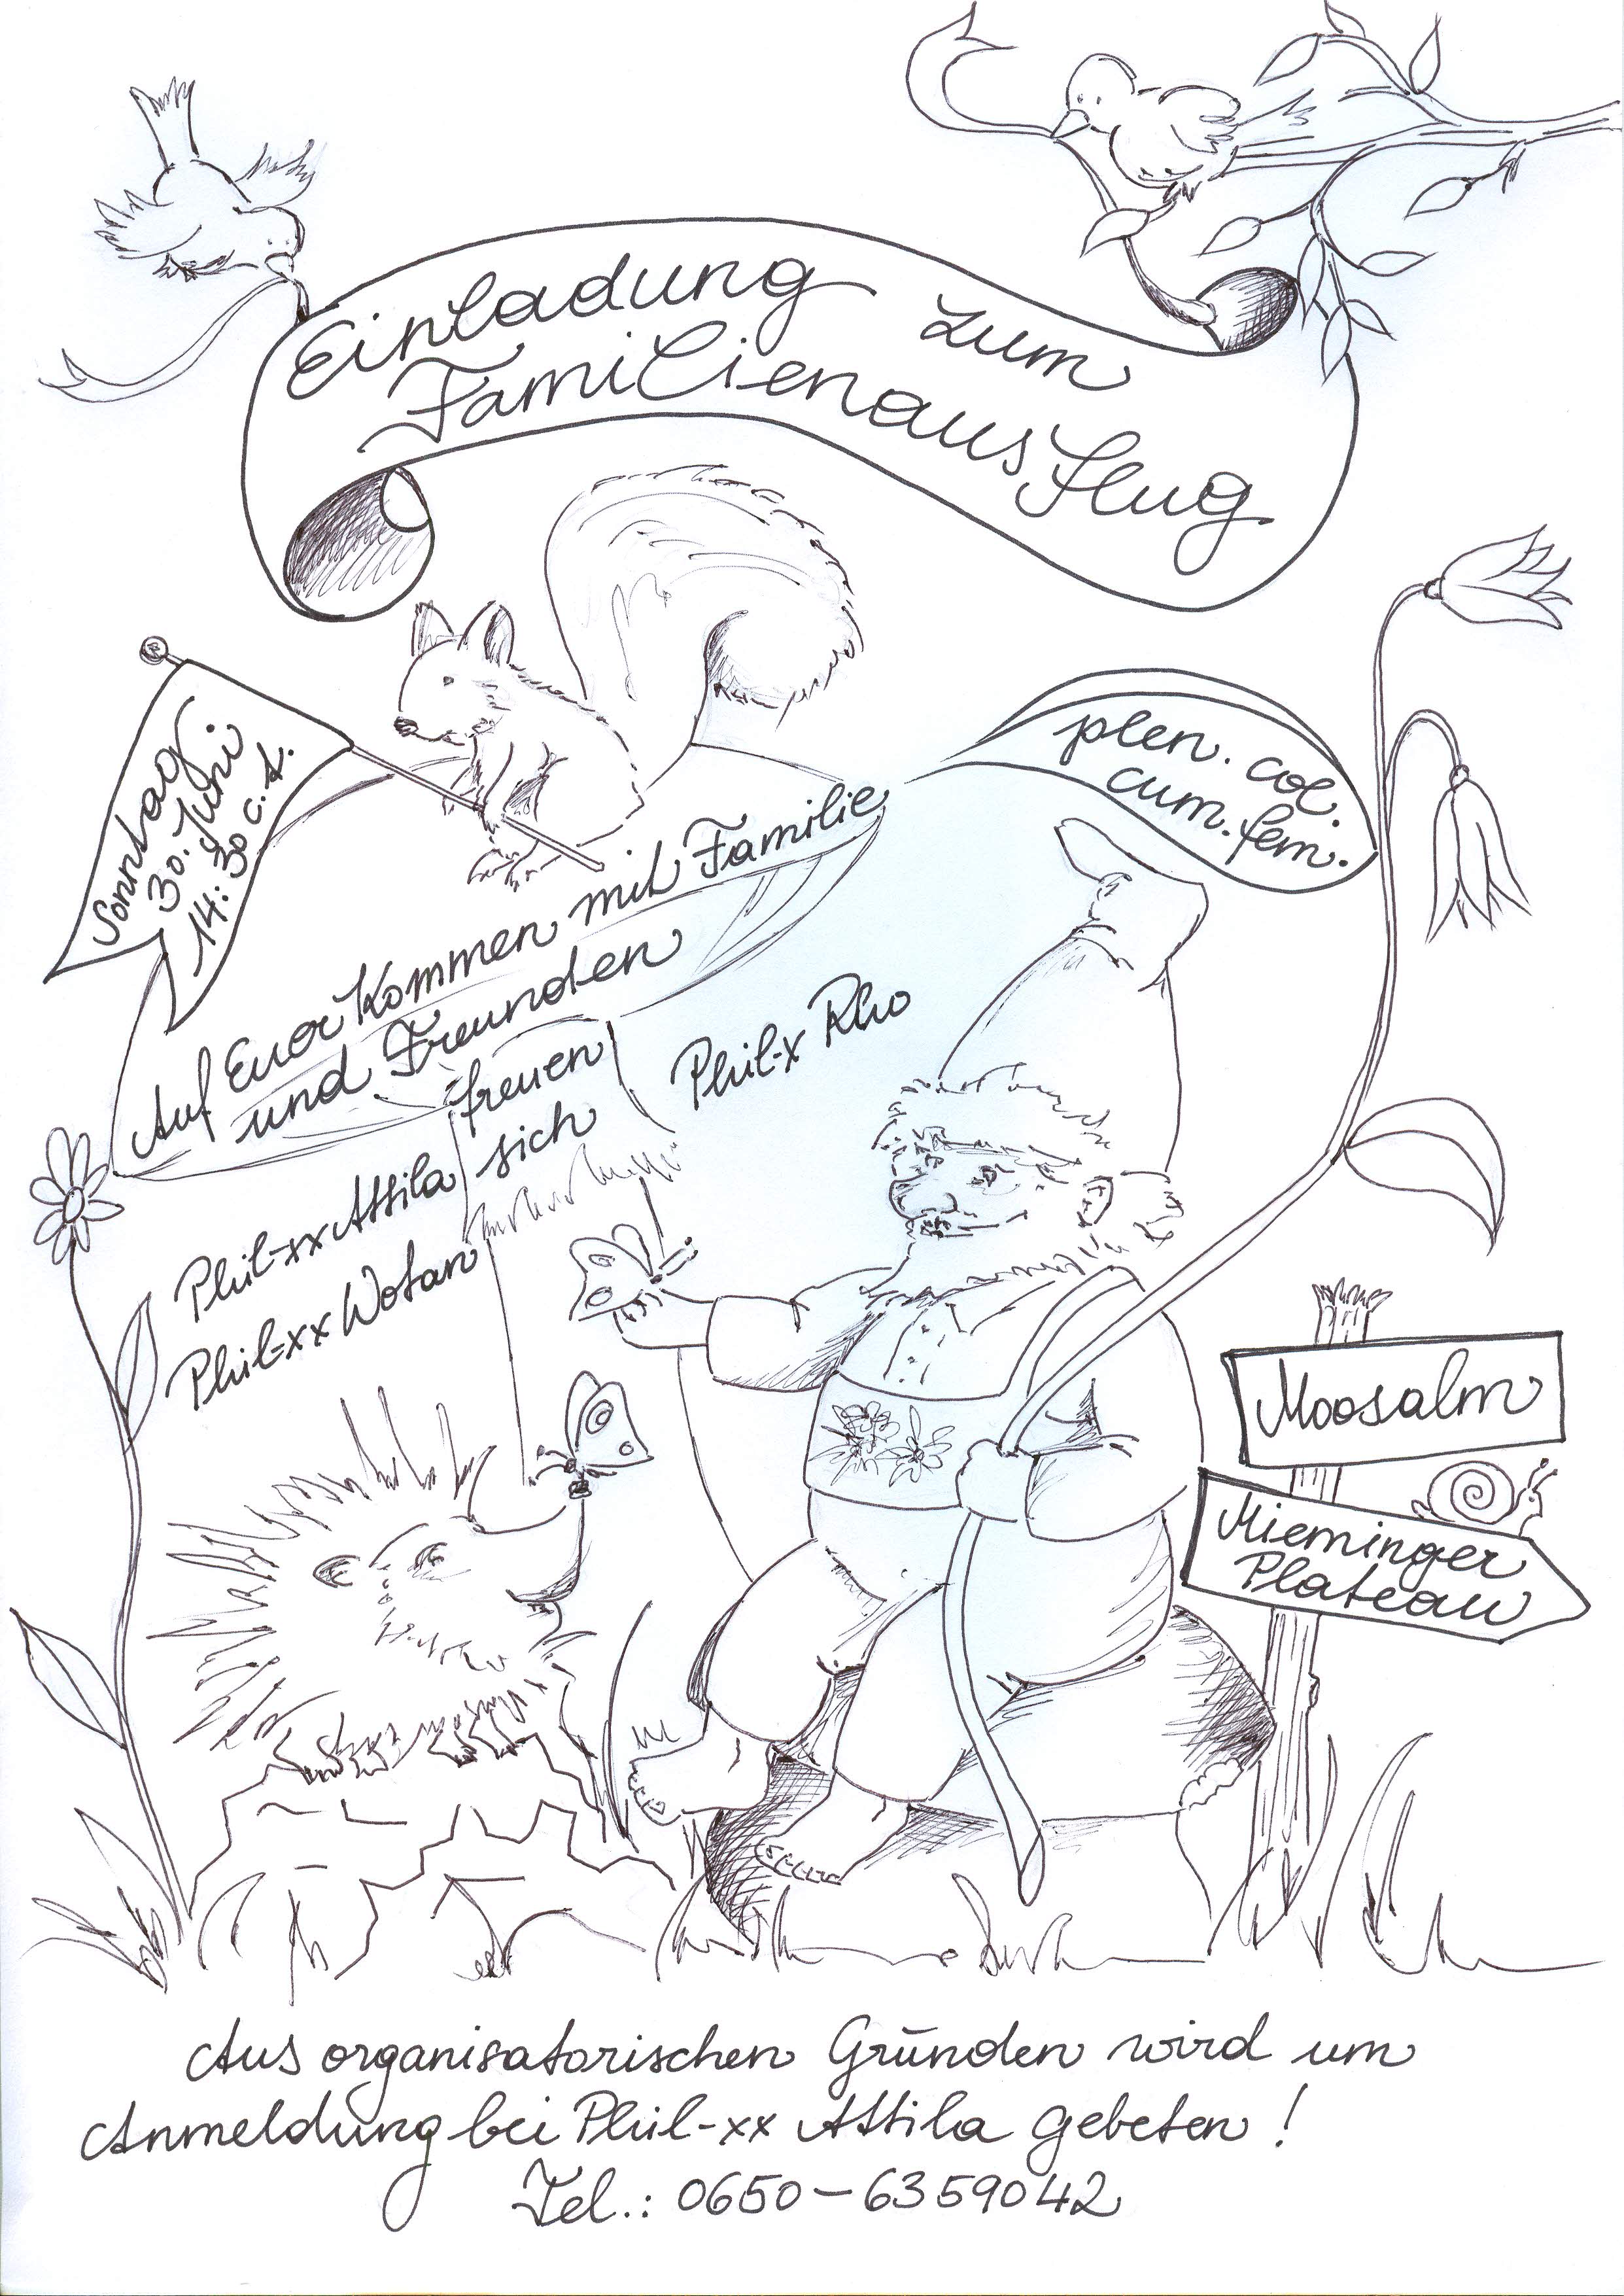 Einladung zum
Familienausflug
plen. col.
cum. fem.
Sonntag
30. Juni
14:30 c. t.
Auf Euer Kommen mit Familie
und Freunden
freuen
sich
Phil-x Rho
Phil-xx Attila
Phil-xx Wotan
Moosalm
Mieminger
Plateau
Aus organisatorischen Gründen wird um
Anmeldung bei Phil-xx Attila gebeten!
Tel.: 0650-6359042